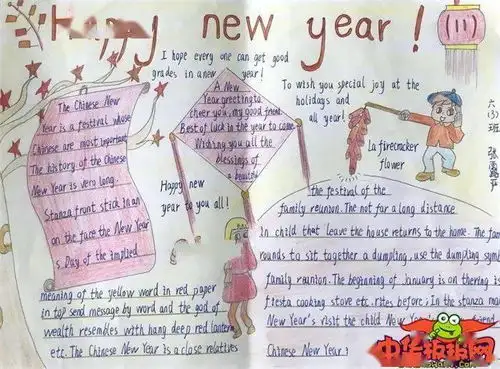 Happy new year!
I hope every one can get good
grades in a new year!
The Chinese New
Year is a festival whose
Chinese are most important
The history of the Chinese
New Year is very long.
Stanza front stick in an
on the face the New Year
s Day of the implied
meaning of the yellow word in red paper
in top send message by word and the god of
wealth resembles with hang deep red lantern
etc. The Chinese New Year is a close relatives
A New
Year greeting to
cheer you, my good friend.
Best of luck in the year to come
Wishing you all the
blessings of
a beautiful
Happy new
year to you all!
To wish you special joy at the
holidays and
all year!
La firecracker
flower
六(3)班
the festival of the
family reunion. The not far a long distance
In child that leave the house returns to the home. The fam
rounds to sit together a dumpling, use the dumpling symb
family reunion. The beginning of January is an thering is
fiesta cooking stove etc. rites before; In the stanza
New Year's visit the child New
Chinese New Year
中华手抄报网